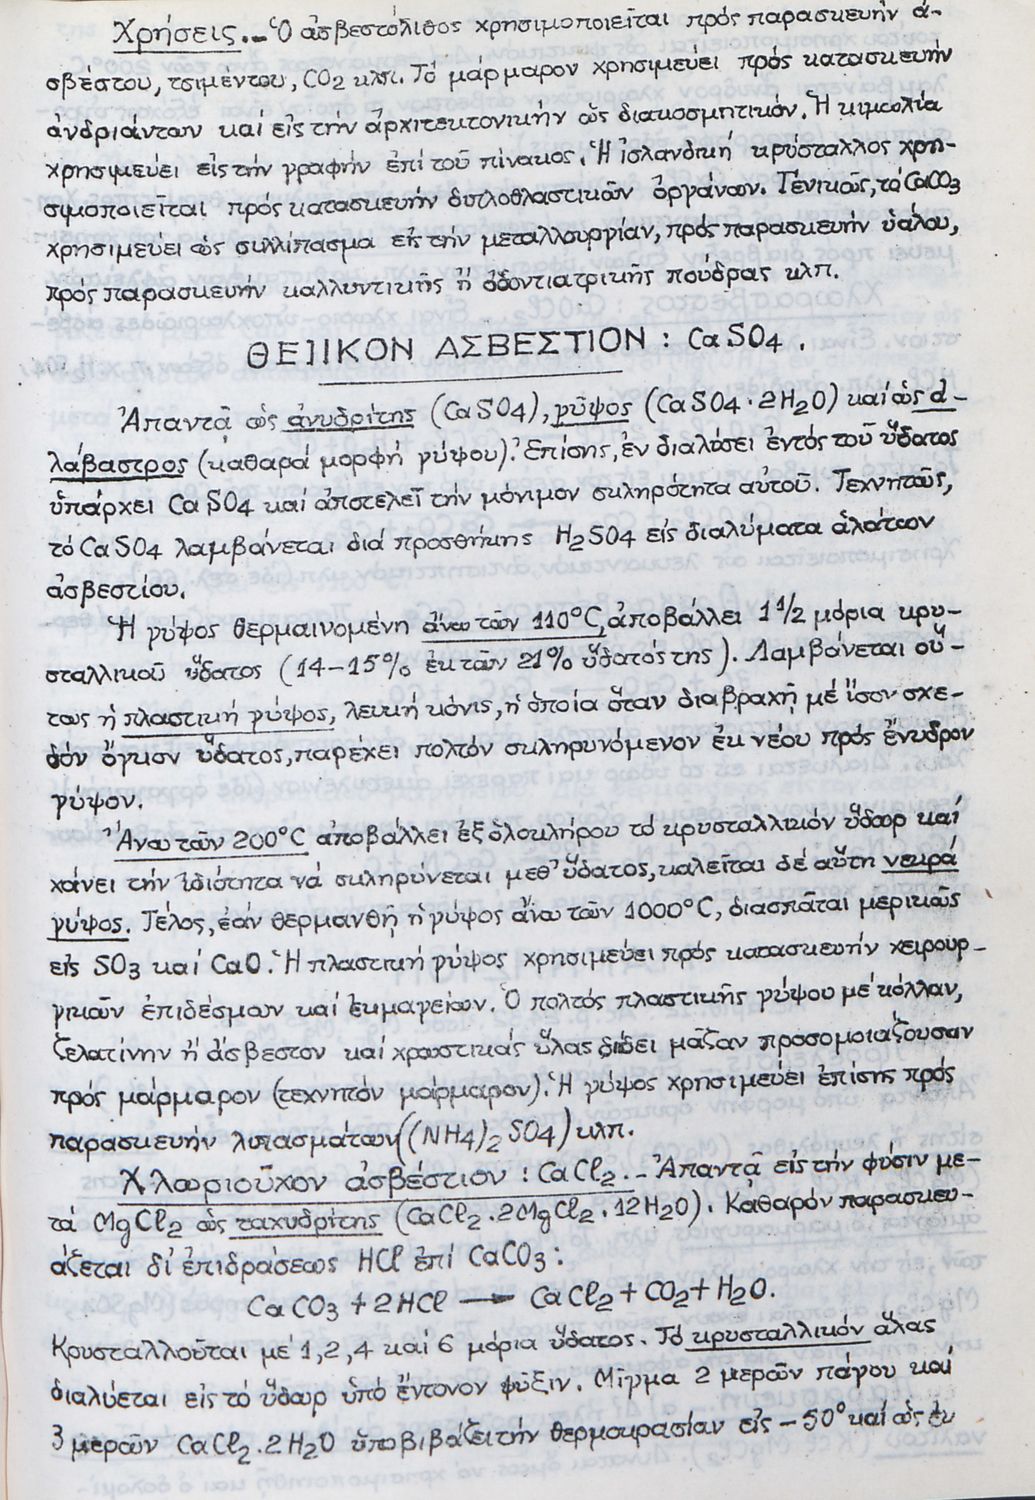 Χρήσεις.– Ὁ ἀσβεστόλιθος χρησιμοποιεῖται πρός παρασκευήν ἀ-
σβέστου, τσιμέντου, CO2 κλπ. Τό μάρμαρον χρησιμεύει πρός κατασκευήν
ἀνδριάντων καί εἰς τήν ἀρχιτεκτονικήν ὡς διακοσμητικόν. Ἡ κιμωλία
χρησιμεύει εἰς τήν γραφήν ἐπί τοῦ πίνακος. Ἡ ἰσλανδική κρύσταλλος χρη-
σιμοποιεῖται πρός κατασκευήν διπλοθλαστικῶν ὀργάνων. Γενικῶς, τό CaCO3
χρησιμεύει ὡς συλλίπασμα εἰς τήν μεταλλουργίαν, πρός παρασκευήν ὑάλου,
πρός παρασκευήν καλλυντικῆς ἤ ὀδοντιατρικῆς πούδρας κλπ.
ΘΕΙΙΚΟΝ ΑΣΒΕΣΤΙΟΝ : CaSO4 .
Ἀπαντᾷ ὡς ἀνυδρίτης (CaSO4), γύψος (CaSO4·2H2O) καί ὡς ἀ-
λάβαστρος (καθαρά μορφή γύψου). Ἐπίσης, ἐν διαλύσει ἐντός τοῦ ὕδατος
ὑπάρχει CaSO4 καί ἀποτελεῖ τήν μόνιμον σκληρότητα αὐτοῦ. Τεχνητῶς,
τό CaSO4 λαμβάνεται διά προσθήκης H2SO4 εἰς διαλύματα ἁλάτων
ἀσβεστίου.
Ἡ γύψος θερμαινομένη ἄνω τῶν 110°C, ἀποβάλλει 1 1/2 μόρια κρυ-
σταλλικοῦ ὕδατος (14–15% ἐκ τῶν 21% ὕδατός της). Λαμβάνεται οὕ-
τως ἡ πλαστική γύψος, λευκή κόνις, ἡ ὁποία ὅταν διαβραχῇ μέ ἴσον σχε-
δόν ὄγκον ὕδατος, παρέχει πολτόν σκληρυνόμενον ἐκ νέου πρός ἔνυδρον
γύψον.
Ἄνω τῶν 200°C ἀποβάλλει ἐξ ὁλοκλήρου τό κρυσταλλικόν ὕδωρ καί
χάνει τήν ἰδιότητα νά σκληρύνεται μεθ' ὕδατος, καλεῖται δέ αὕτη νεκρά
γύψος. Τέλος, ἐάν θερμανθῇ ἡ γύψος ἄνω τῶν 1000°C, διασπᾶται μερικῶς
εἰς SO3 καί CaO. Ἡ πλαστική γύψος χρησιμεύει πρός κατασκευήν χειρουρ-
γικῶν ἐπιδέσμων καί ἐκμαγείων. Ὁ πολτός πλαστικῆς γύψου μέ κόλλαν,
ζελατίνην ἤ ἄσβεστον καί χρωστικάς ὕλας δίδει μᾶζαν προσομοιάζουσαν
πρός μάρμαρον (τεχνητόν μάρμαρον). Ἡ γύψος χρησιμεύει ἐπίσης πρός
παρασκευήν λιπασμάτων ((NH4)2SO4) κλπ.
Χλωριοῦχον ἀσβέστιον : CaCl2.– Ἀπαντᾷ εἰς τήν φύσιν με-
τά MgCl2 ὡς ταχυδρίτης (CaCl2·2MgCl2·12H2O). Καθαρόν παρασκευ-
άζεται δι' ἐπιδράσεως HCl ἐπί CaCO3 :
CaCO3 + 2HCl → CaCl2 + CO2 + H2O.
Κρυσταλλοῦται μέ 1, 2, 4 καί 6 μόρια ὕδατος. Τό κρυσταλλικόν ἅλας
διαλύεται εἰς τό ὕδωρ ὑπό ἔντονον ψῦξιν. Μῖγμα 2 μερῶν πάγου καί
3 μερῶν CaCl2·2H2O ὑποβιβάζει τήν θερμοκρασίαν εἰς –50° καί ὡς ἐκ